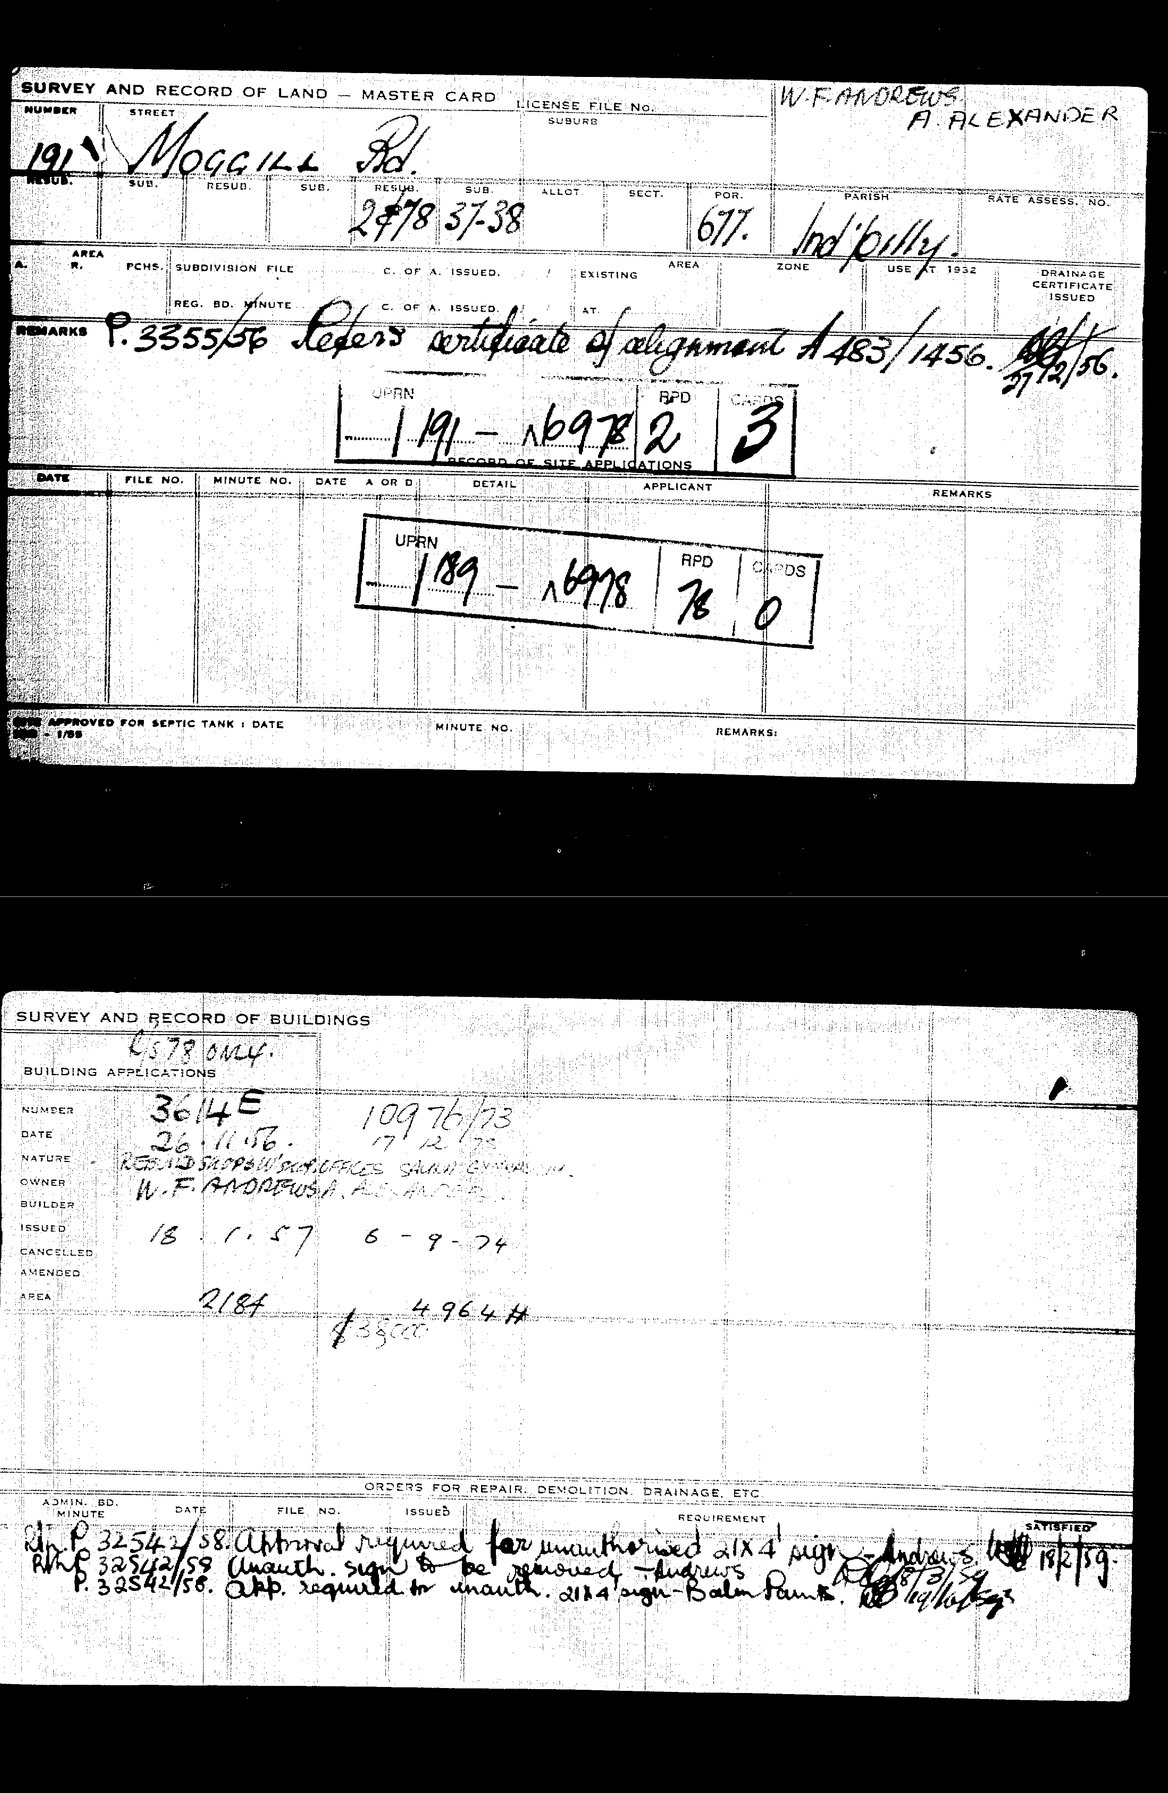 SURVEY AND RECORD OF LAND — MASTER CARD
LICENSE FILE NO.
W.F. ANDREWS.
A. ALEXANDER
NUMBER STREET SUBURB
191 MOGGILL Rd.
RESUB. SUB. RESUB. SUB. RESUB. SUB. ALLOT. SECT. POR. PARISH RATE ASSESS. NO.
2 & 78 37-38 677. Ind'pilly.
AREA
A. R. PCHS. SUBDIVISION FILE C. OF A. ISSUED. / / EXISTING AREA ZONE USE AT 1932 DRAINAGE CERTIFICATE ISSUED
REG. BD. MINUTE C. OF A. ISSUED. / / AT.
REMARKS P. 3355/56 Refers certificate of alignment A 483/1456.
27/12/56.
UPRN RPD CARDS
191 — 6978 2 3
RECORD OF SITE APPLICATIONS
DATE FILE NO. MINUTE NO. DATE A OR D DETAIL APPLICANT REMARKS
UPRN RPD CARDS
189 — 6978 78 0
APPROVED FOR SEPTIC TANK : DATE MINUTE NO. REMARKS:
SURVEY AND RECORD OF BUILDINGS
R/S 78 ONLY.
BUILDING APPLICATIONS
NUMBER 3614E 10976/73
DATE 26.11.56. 17 12 73
NATURE REBUILD SHOPS W'SHOP, OFFICES SAUNA GYMNASIUM.
OWNER W.F. ANDREWS A. ALEXANDER
BUILDER
ISSUED 18.1.57 6-9-74
CANCELLED
AMENDED
AREA 2184 4964
$38,000
ORDERS FOR REPAIR, DEMOLITION, DRAINAGE, ETC.
ADMIN. BD. MINUTE DATE FILE NO. ISSUED REQUIREMENT SATISFIED
P. 32542/58. Approval required for unauthorised 21x4' sign - Andrews 18/2/59.
P. 32542/58 Unauth. sign to be removed - Andrews
P. 32542/58. App. required for unauth. 21x4' sign - Balm Paints.